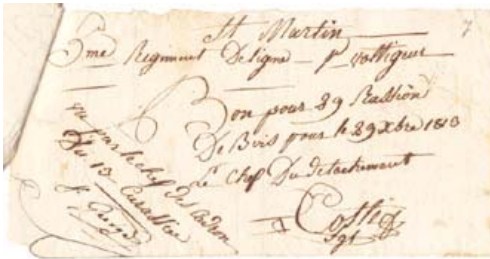 St Martin
7
3me Regiment De ligne - Pr voltigeur
Bon pour 29 Rassion
De Bois pour le 29 Xbre 1813
Le Chef Du detachement
Sgt
vu par le chef d'escadron
du 13 Cuirassier